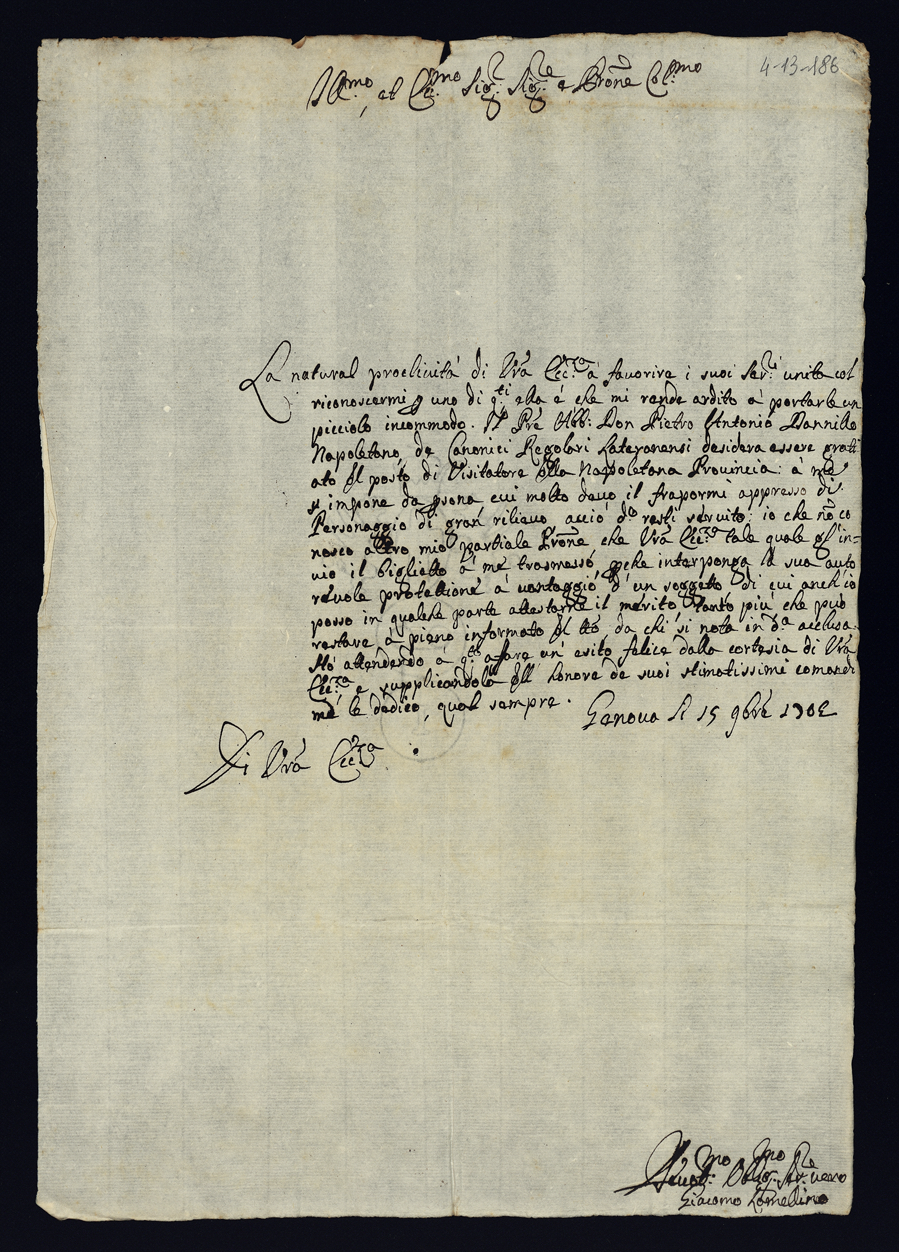 4-13-186
Ill.mo et Ecc.mo Sig.r Sig.re e Prōne Col.mo
La natural proclività di Vrā Ecc.za à favorire i suoi Ser.ri unita col
riconoscermi p uno di q.ti ella è che mi rende ardito à portarle un
picciolo incommodo. Il Prē Abb: Don Pietro Antonio Dannillo
Napoletano, de Canonici Regolari Lateranensi desidera essere grati
ato del posto di Visitatore della Napoletana Provincia: à me
s' impone da psona cui molto devo il frapormi appresso di
Personaggio di gran rilievo acciò d.o resti servito: io che nō co
nosco altro mio partiale Prōne che Vrā Ecc.za tale quale gl' in=
vio il biglietto à me trasmesso, pche interponga la sua auto
revole protettione à vantaggio d' un soggetto di cui anch' io
posso in qualche parte attestarne il merito, tanto più che può
restare à pieno informato del ttō da chi si nota in d.a acclusa.
Stò attendendo à q.to affare un' esito felice dalla cortesia di Vrā
Ecc.za e supplicandola dell' honore de suoi stimatissimi comandi
me le dedico, qual sempre.
Genova li 15 9bre 1702
Di Vrā Ecc.za
Devot.mo Oblig.mo Ser.re vero
Giacomo Lomellino